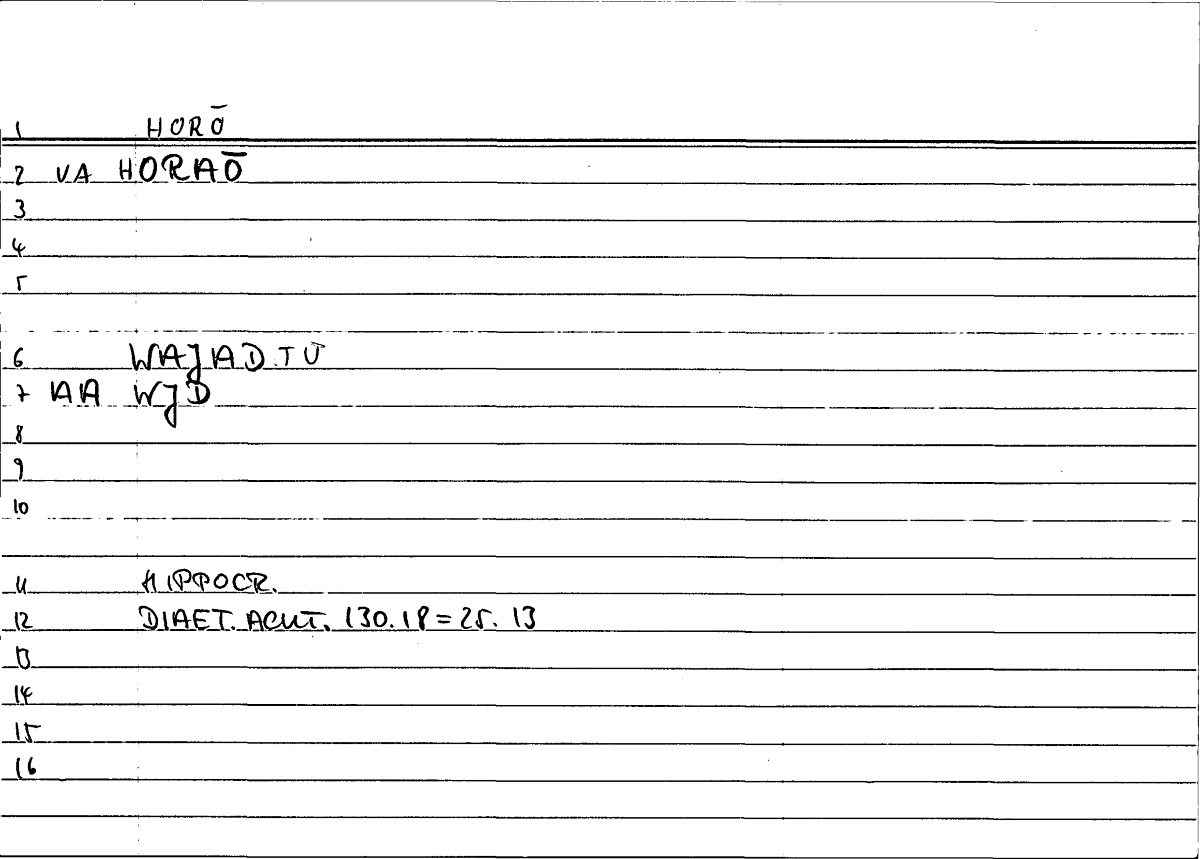 1 HORŌ
2 VA HORAŌ
3
4
5
6 WAJAD.TU
7 AA WJD
8
9
10
11 HIPPOCR.
12 DIAET. ACUT. 130.18 = 25.13
13
14
15
16